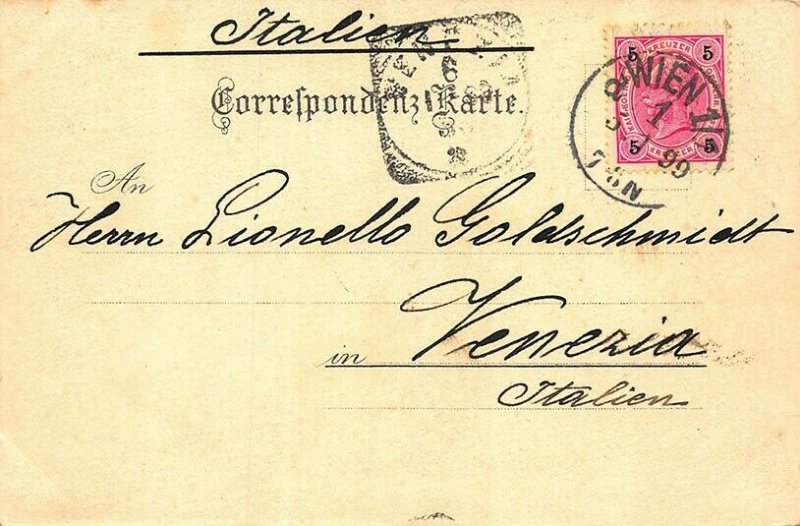 Italien
5 KREUZER 5
WIEN 1
1
99
5 5
KREUZER
Correspondenz-Karte.
An
Herrn Lionello Goldschmidt
in Venezia
Italien